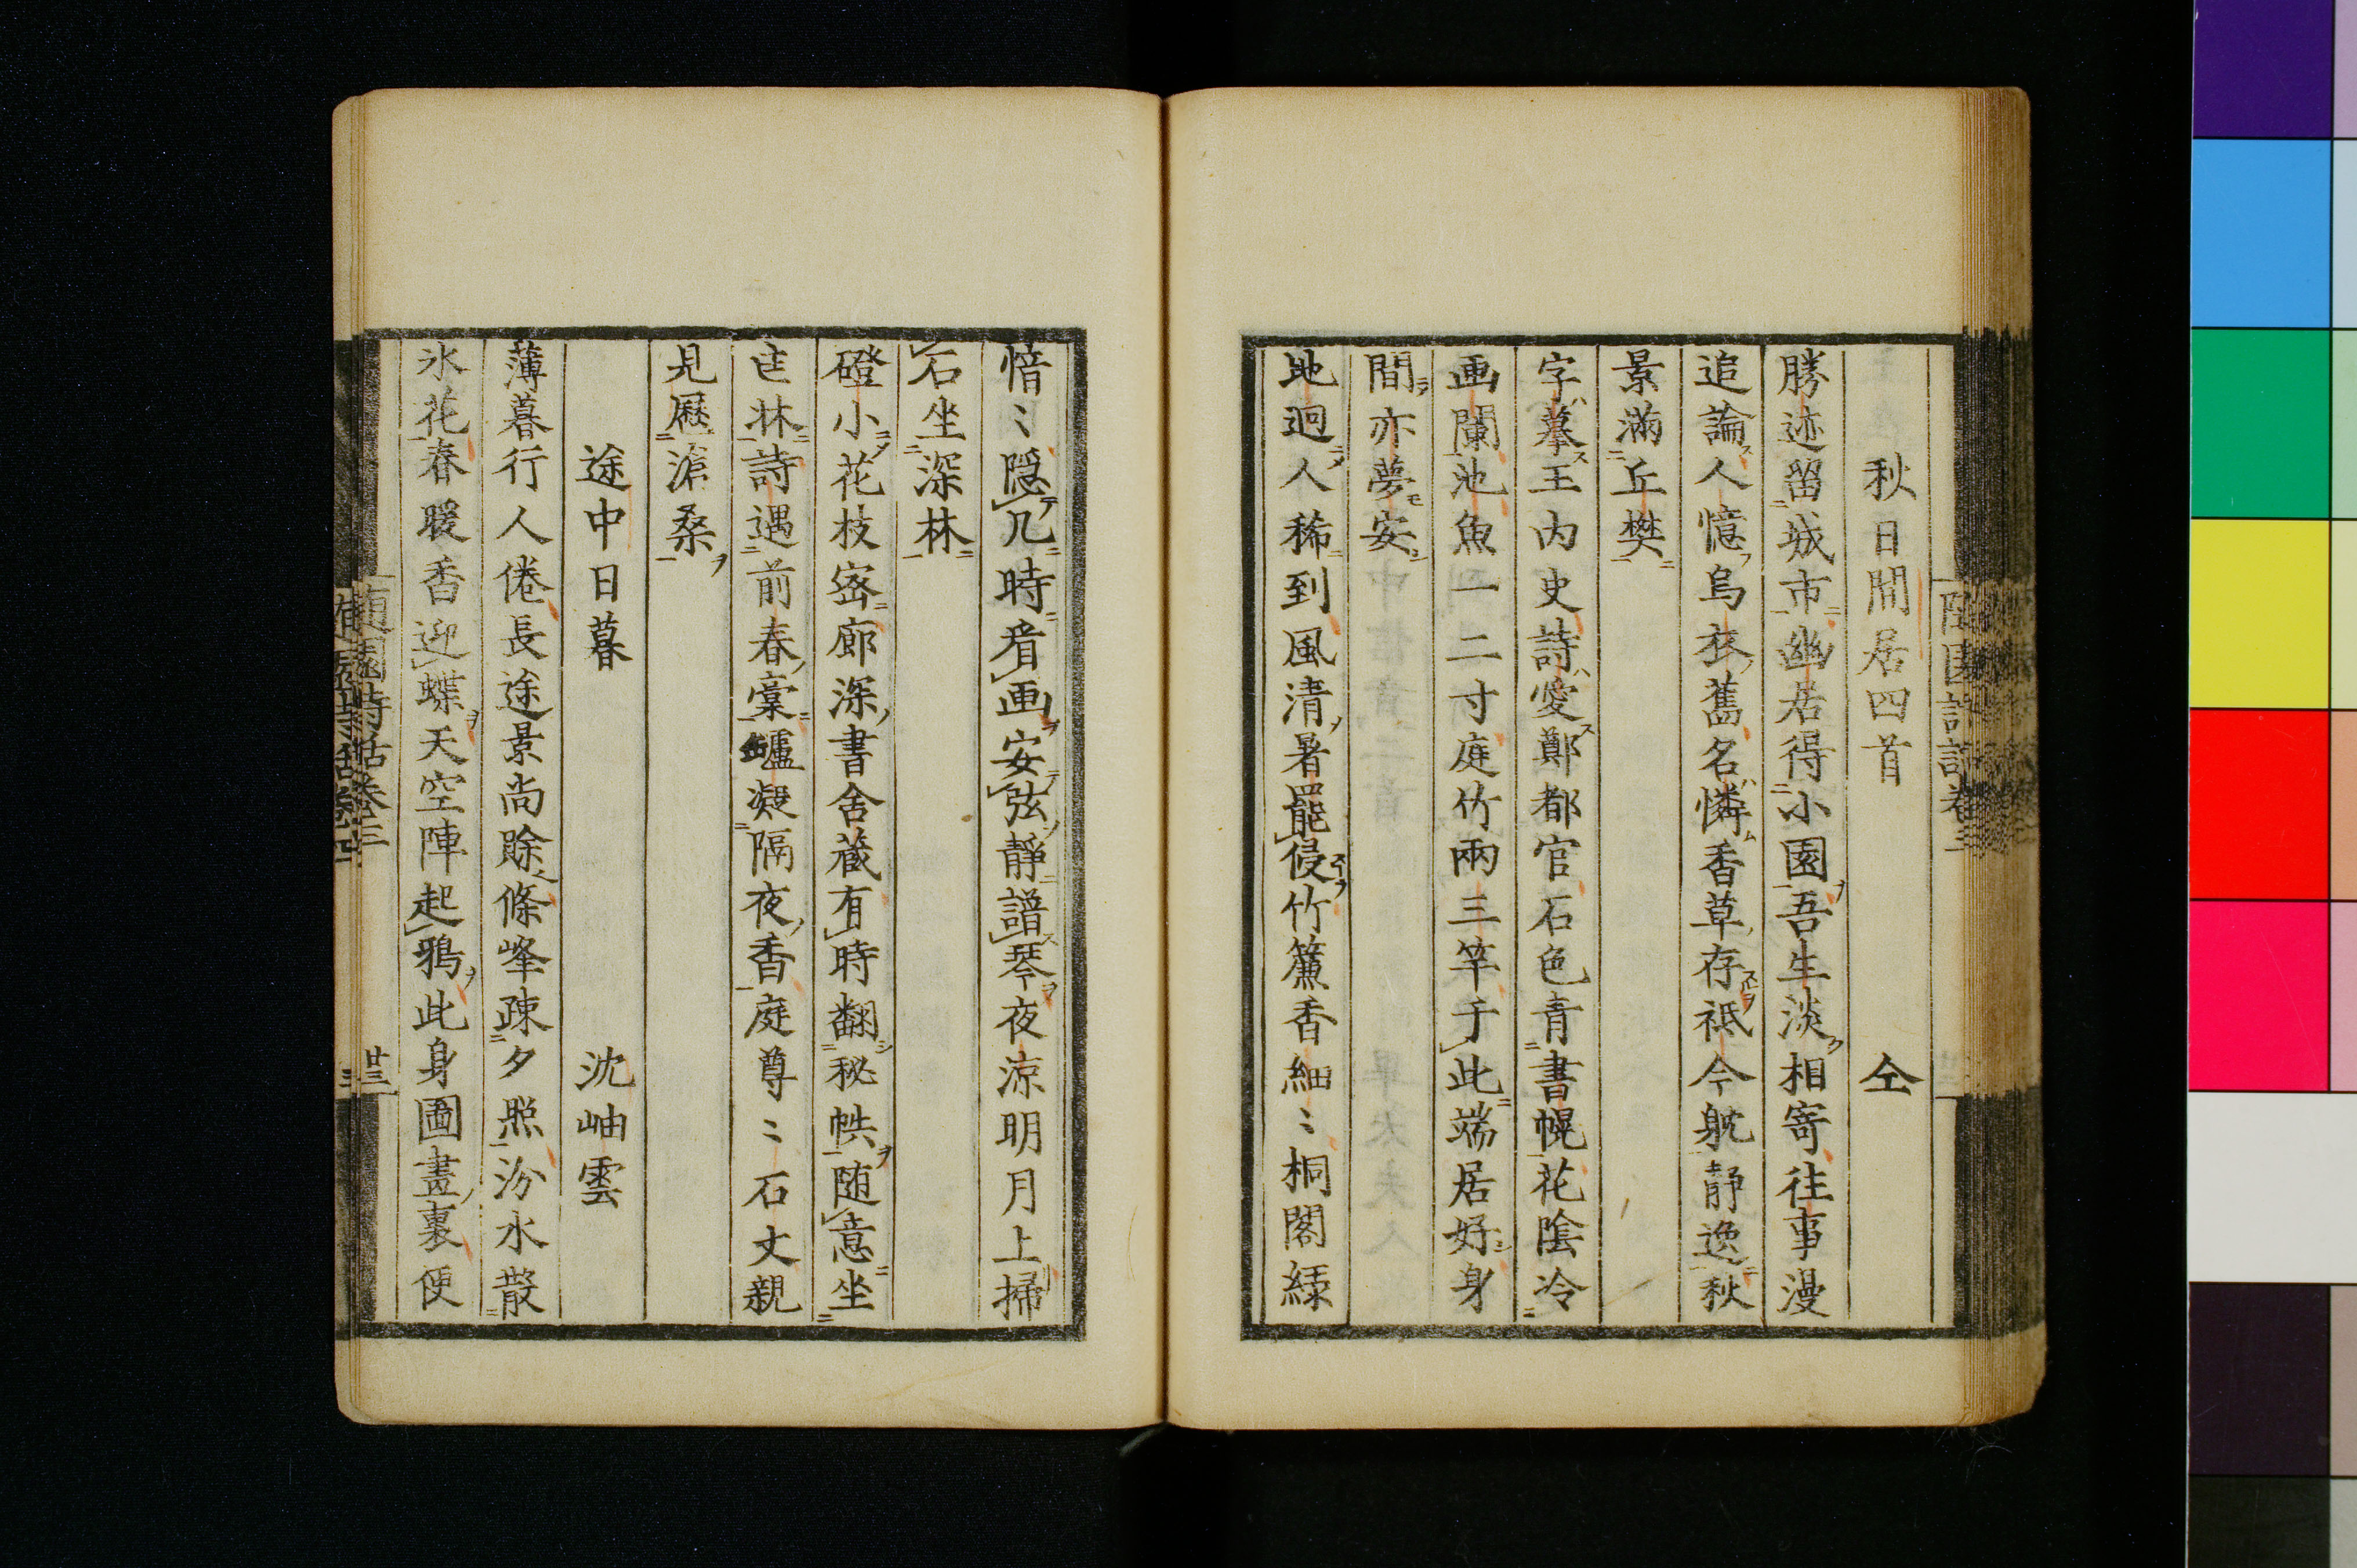 秋日閒居四首 仝
勝迹留城市幽居得小園吾生淡相寄往事漫
追論人憶烏衣舊名憐香草存祗今躭靜逸秋
景滿丘樊
字摹王內史詩愛鄭都官石色青書幌花陰冷
画闌池魚一二寸庭竹兩三竿于此端居好身
間亦夢安
地迥人稀到風清暑罷侵竹簾香細〻桐閣綠
愔〻隱几時看画安弦靜譜琴夜涼明月上掃
石坐深林
磴小花枝密廊深書舍藏有時翻秘帙随意坐
匡牀詩遇前春藁罏凝隔夜香庭尊〻石丈親
見歷滄桑
途中日暮 沈岫雲
薄暮行人倦長途景尚賒條峰疎夕照汾水散
氷花春暖香迎蝶天空陣起鴉此身圖畫裏便
隨園詩話卷三
廿三